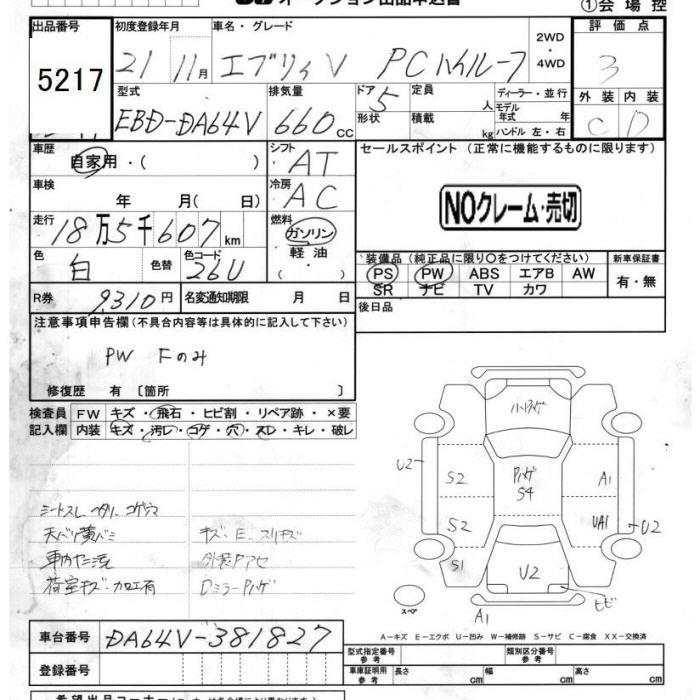 オークション出品申込書
①会場控
出品番号 5217
初度登録年月 21 11月
車名・グレード エブリィV PCハイルーフ
2WD・4WD
評価点 3
外装 C
内装 D
型式 EBD-DA64V
排気量 660cc
ドア 5
形状
定員 人
積載 kg
ディーラー・並行
モデル年式 年
ハンドル 左・右
車歴 自家用・( )
シフト AT
車検 年 月( 日)
冷房 AC
走行 18万5千607km
燃料 ガソリン 軽油 ( )
色 白
色替
色コード 26U
R券 9,310円
名変通知期限 月 日
セールスポイント (正常に機能するものに限ります)
NOクレーム・売切
装備品 (純正品に限り○をつけてください)
新車保証書
PS PW ABS エアB AW
有・無
SR ナビ TV カワ
後日品
注意事項申告欄(不具合内容等は具体的に記入して下さい)
PW Fのみ
修復歴 有 〔箇所 〕
検査員 FW キズ・飛石・ヒビ割・リペア跡・×要
記入欄 内装 キズ・汚レ・コゲ・穴・スレ・キレ・破レ
シートスレ ヘタリ コゲ穴
天バリ黄バミ キズ・E・スリキズ
車内ヤニ汚 外装Pアセ
荷室キズ・加工有 DミラーPハゲ
Pハゲ
S4
U2 S2 A1
S2 UA1 U2
S1 U2 ヒビ
スペア A1
A-キズ E-エクボ U-凹み W-補修跡 S-サビ C-腐食 XX-交換済
車台番号 DA64V-381827
登録番号
型式指定番号 参考
類別区分番号 参考
車庫証明用 参考 長さ cm 幅 cm 高さ cm